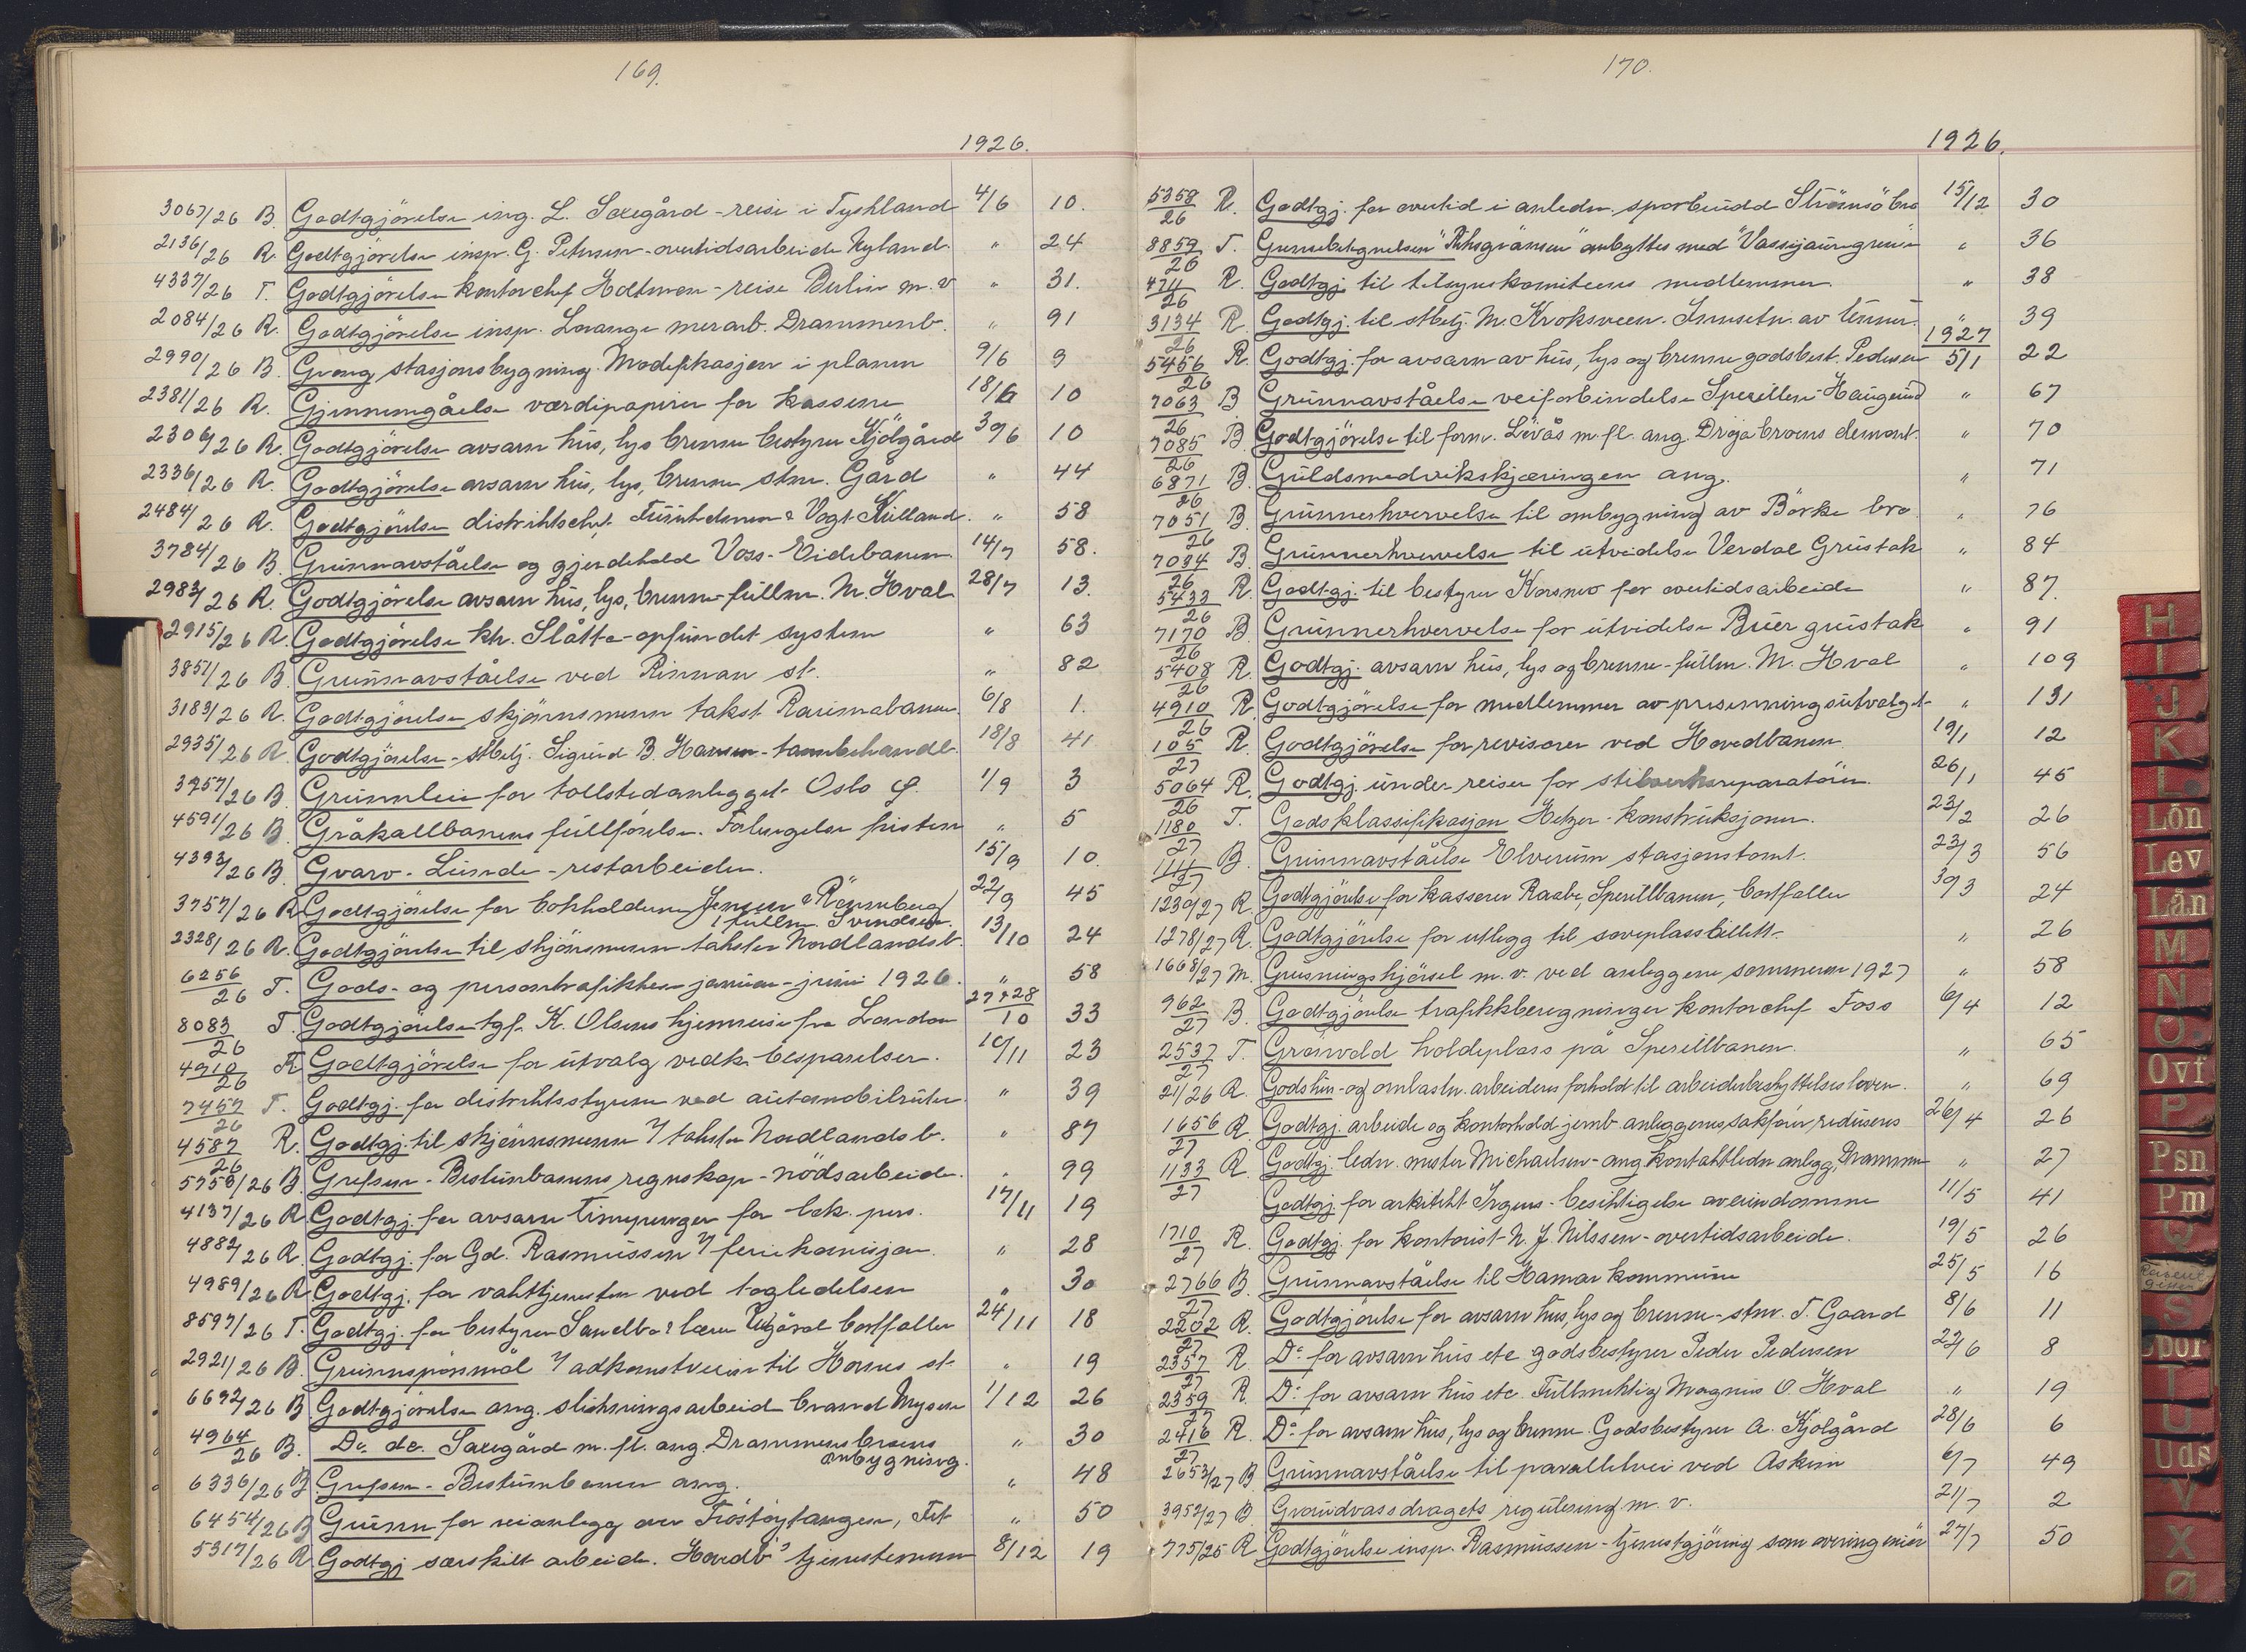 169.
1926.
3067/26 B. Godtgjörelse ing. L. Saxegård - reise i Tyskland 4/6 10.
2136/26 R. Godtgjörelse insp. G. Petersen - overtidsarbeide Nyland. " 24
4337/26 T. Godtgjörelse kontorchef Holtmon - reise Berlin m. v " 31.
2084/26 R. Godtgjörelse insp. Lorange merarb. Drammenb. " 91
2990/26 B. Grong stasjonsbygning. Modifikasjon i planen 9/6 9
2381/26 R. Gjennemgåelse værdipapirer for kassene 18/6 10
2306/26 R. Godtgjörelse avsavn hus, lys brenne bestyrer Kjölgård 30/6 10
2336/26 R. Godtgjörelse avsavn hus, lys, brenne, stm. Gård " 44
2484/26 R. Godtgjörelse distriktschef & Vogt Killand. " 58
3784/26 B. Grunnavståelse og gjerdehold Voss-Eidebanen 14/7 58.
2983/26 R. Godtgjörelse avsavn hus, lys, brenne fullm. M. Hval 28/7 13.
2915/26 R. Godtgjörelse ktr. Slåtta - opfundet system " 63
3851/26 B. Grunnavståelse ved Rinnan st. " 82
3183/26 R. Godtgjörelse skjönnsmenn takst Raumabanen 6/8 1.
2935/26 R. Godtgjörelse - stbetj. Sigurd B. Hansen - tannbehandl. 18/8 41
3957/26 B Grunnleie for tollstedanlegget Oslo Ø. 1/9 3
4591/26 B Gråkallbanens fullförelse. Forlengelse fristen " 5
4393/26 B Gvarv-Lunde - restarbeider. 15/9 10.
3757/26 R Godtgjörelse for bokholderne Jensen & Rönneberg 22/9 45
1 fullm. Svendsen
2328/26 R. Godtgjörelse til skjönsmenn takster Nordlandsb. 13/10 24
6256/26 T. Gods- og persontrafikken januar-juni 1926. " 58
8083/26 T. Godtgjörelse tgf. K. Olsens hjemreise fra London 27+28/10 33
4910/26 R Godtgjörelse for utvalg vedk. besparelser. 10/11 23
7457/26 T. Godtgj. for distriktsstyrene ved automobilruter " 39
4587/26 R. Godtgj. til skjönnsmenn v/ takster Nordlandsb. " 87
5758/26 B. Grefsen-Bestumbanens regnskap - nödsarbeide. " 99
4137/26 R Godtgj. for avsavn timepenger for lok. pers. 17/11 19
4882/26 R. Godtgj. for Gd. Rasmussen v/ feriekomisjon. " 28
4989/26 R Godtgj. for vakttjenesten ved togledelsen " 30
8597/26 T. Godtgj. for bestyrer & lærer bortfaller 24/11 18
2921/26 B. Grunnspörsmål v/ adkomstveien til Hovens st. " 19
6692/26 B. Godtgjörelse ang. slukningsarbeide brand Mysen 1/12 26
4964/26 B. Do. do. Saxegård m. fl. ang. Drammensbroens " 30
ombygning.
6336/26 B Grefsen-Bestumbanen ang. " 48
6454/26 B Grunn for veianlegg over Tröstöytangen, Fet " 50
5317/26 R Godtgj særskilt arbeide. Hovedbs tjenestemenn 8/12 19
170.
1926.
5358/26 R. Godtgj. for overtid i anledn. sporbrudd Strömsö bro 15/12 30
8859/26 T. Grensebetegnelsen "Riksgränsen" ombyttes med "Vassijauregrense" " 36
4711/26 R. Godtgj. til tilsynskomiteens medlemmer. " 38
3134/26 R Godtgj. til stbetj. M. Kroksveen. av tenner. " 39
1927
5456/26 R. Godtgj. for avsavn av hus, lys og brenne godsbest. Pedersen 5/1 22
7063/26 B Grunnavståelse veiforbindelse Sperillen-Haugerud " 67
7085/26 B Godtgjörelse til form. Lövås m. fl. ang. Drojabroens demont. " 70
6871/26 B. Guldsmedvikskjæringen ang. " 71
7051/26 B Grunnerhvervelse til ombygning av Börke bro. " 76
7094/26 B Grunnerhvervelse til utvidelse Verdal Grustak " 84
5433/26 R. Godtgj. til bestyrer Korsmo for overtidsarbeide " 87.
7170/26 B Grunnerhvervelse for utvidelse Bruer grustak " 91
5408/26 R. Godtgj. avsavn hus, lys og brenne - fullm. M. Hval " 109
4910/26 R. Godtgjörelse for medlemmer av presenningsutvalget " 131
105/27 R. Godtgjörelse for revisorer ved Hovedbanen 19/1 12
5064/26 R. Godtgj. under reiser for stilverksreparatörer. 26/1 45
1180/27 T. Godsklassifikasjon Hetzer-konstruksjoner. 23/2 26
1141/27 B. Grunnavståelse Elverum stasjonstomt. 23/3 56
1230/27 R. Godtgjörelse for kasserer Raabe, Sperillbanen, bortfaller 30/3 24
1278/27 R. Godtgjörelse for utlegg til soveplassbillett. " 26
1668/27 M. Grusningskjörsel m. v. ved anleggene sommeren 1927 " 58
962/27 B. Godtgjörelse trafikkberegninger kontorchef Foss 6/4 12
2537/27 T. Grönvold holdeplass på Sperillbanen. " 65
21/26 R. Godshus- og omlastn. arbeideres forhold til arbeiderbeskyttelsesloven. " 69
1656/27 R Godtgj. arbeide og kontorhold jernb. anleggenes sakförer reduseres 26/4 26
1133/27 R. Godtgj. ledn. mester Michaelsen - ang. kontaktledn anlegg Drammen " 27
Godtgj. for arkitekt Irgens - besiktigelse av eiendomme 11/5 41
1710/27 R. Godtgj. for kontorist N. J. Nilssen - overtidsarbeide. 19/5 26
2766/27 B. Grunnavståelse til Hamar kommune 25/5 16
2202/27 R. Godtgjörelse for avsavn hus, lys og brenne - stm. T. Gaard 8/6 11
2357/27 R Do for avsavn hus etc godsbestyrer Peder Pedersen 22/6 8
2359/27 R. Do for avsavn hus etc. Fullmektig Magnus O. Hval " 19
2416/27 R. Do for avsavn hus, lys og brenne. Godsbestyrer A. Kjolgård 28/6 6
2653/27 B Grunnavståelse til parallelvei ved Askim 6/7 49
3952/27 B. Groundvassdragets regulering m. v. 21/7 2
775/25 R Godtgjörelse insp. Rasmussen - tjenestgjöring som overingeniör 27/7 50
H
I
J
K
L.
Lön
Lev
Lån
M
N
O.
Ovf
P
Psn
Pm
Q
S
Spor
T
U
Uds
V
X
Ø